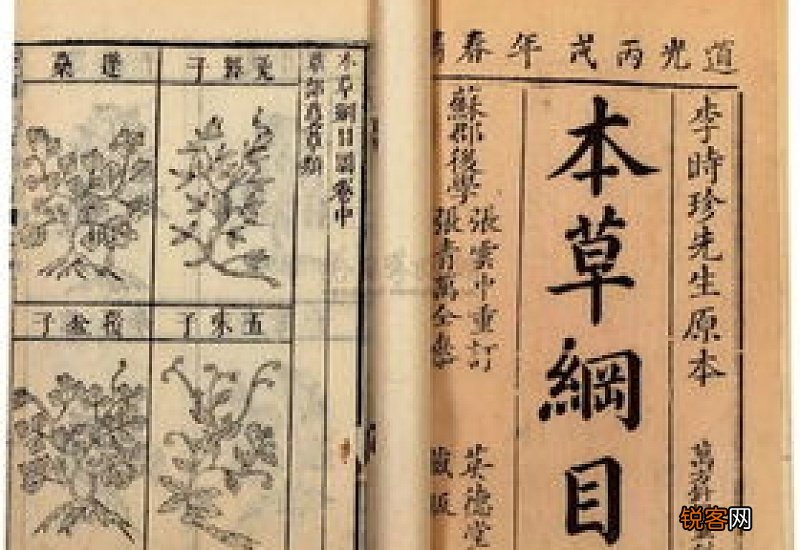 道光丙戌年春
李時珍先生原本
本草綱目
蘇郡後學
張雲中重訂
張青萬仝參
英德堂
藏版
本草綱目圖卷中
草部蔓草類
菟絲子
蓬
五味子
覆盆子
锐客网